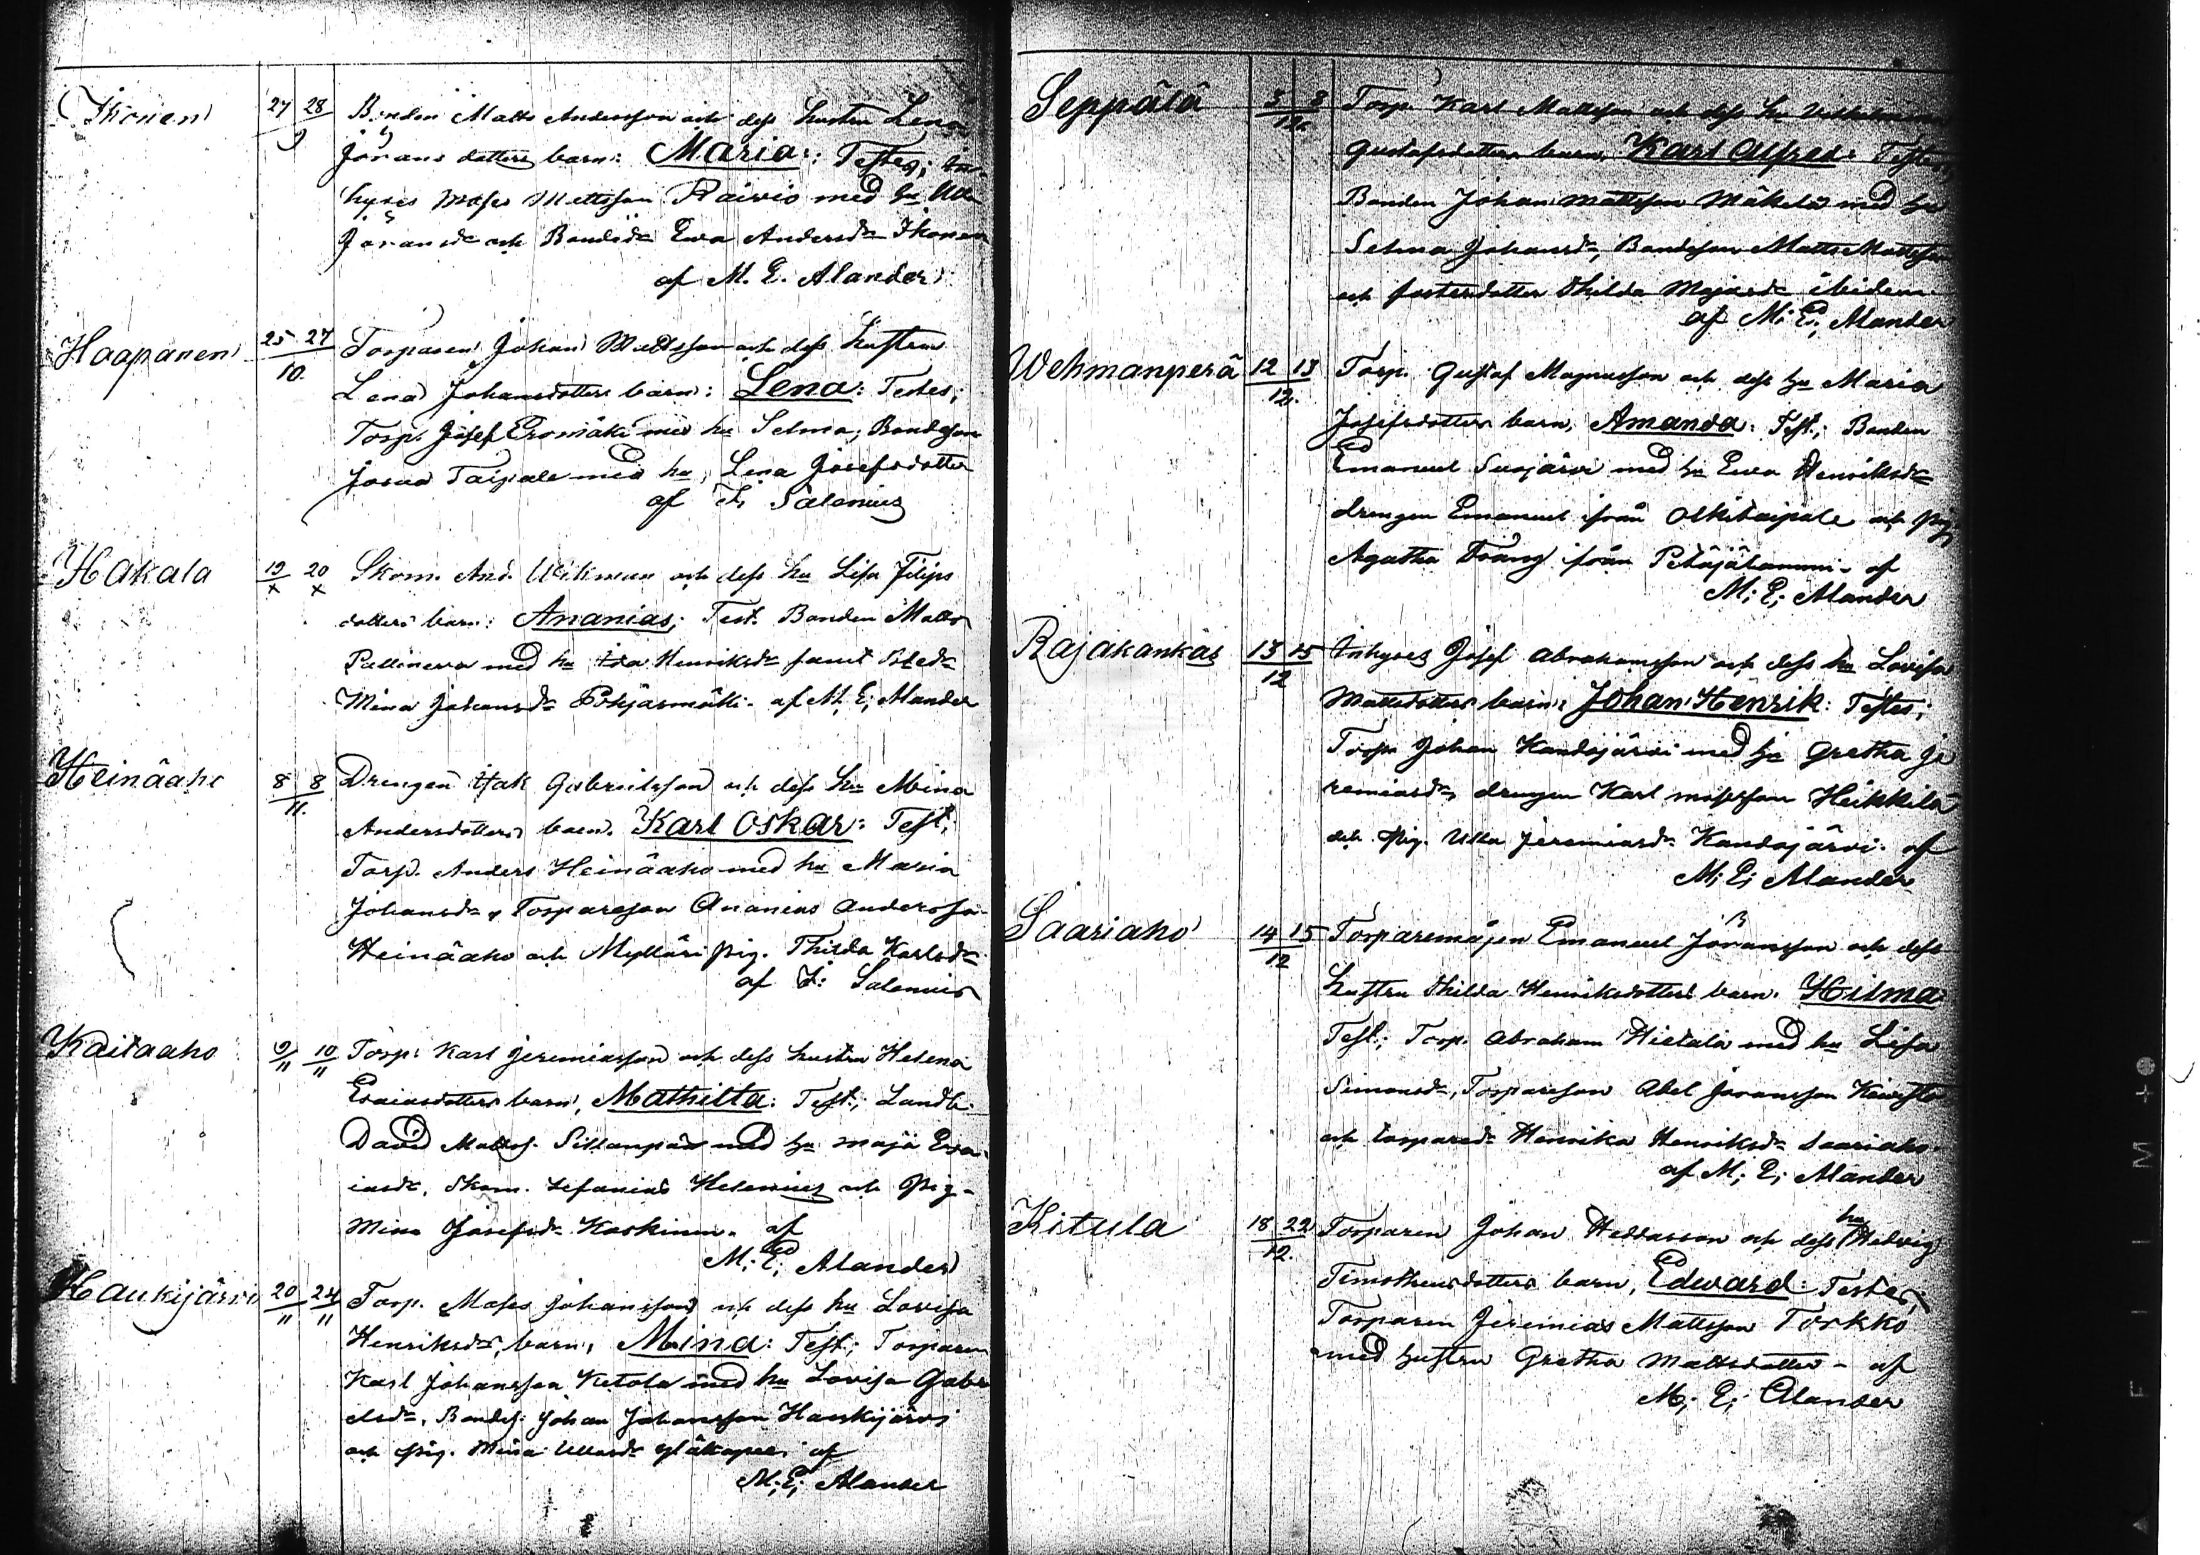 Ikonen 27 28 Bonden Matts Andersson och dess hustru Lena
9 Jörans dotters barn: Maria: Testes: in-
hyses Moses Mattsson Raivio med hu Ulla
Jöransdr och Bondedr Eva Andersdr Ikonen
af M. E. Alander
Haapanen 25 27 Torparen Johan Mattsson och dess hustru
10. Lena Johansdotters barn: Lena: Testes;
Torp. Josef Eromäki med hu Selma, Bondeson
Josua Taipale med hu, Lena Josefsdotter
af F. Salenius
Hakala 19 20 Skom. And. Wikman och dess hu Lisa Filips
x x dotters barn: Ananias; Test. Bonden Matts
med hu Ida Henriksdr samt
Mina Johansdr af M. E; Alander
Heinäaho 8 8 Drengen Isak Gabrielsson och dess hu Mina
11. Andersdotters barn. Karl Oskar: Test;
Torp. Anders Heinäaho med hu Maria
Johansdr, Torpareson Ananias Andersson
Heinäaho och Mylläri pig. Thilda Karlsdr
af F: Salenius
Kaitaaho 9 10 Torp: Karl Jeremiasson och dess hustru Helena
11 11 Esaiasdotters barn, Mathilta: Test; Landb.
David Mattss. Sillanpää med hu Maja Esa-
iasdr, Skom. Sefanias Helenius och Pig-
Mina Josefsdr Koskinen. af
M: E; Alander
Haukijärvi 20 24 Torp. Moses Johansson och dess hu Lovisa
11 11 Henriksdr, barn, Mina: Test; Torparen
Karl Johansson Ketola med hu Lovisa Gabri
elsdr, Bondes. Johan Johansson Haukijärvi
och pig. Mina af
M; E; Alander
Seppälä 3 8 Torp. Karl Mattsson och dess hu Vilhelmina
12. Gustafsdotters barn, Karl Alfred: Testes;
Bonden Johan Mattsson Mäkelä med hu
Selma Johansdr, Bondeson Matts Mattsson
och fosterdotter Thilda Majasdr ibidem
af M; E; Alander
Wehmanperä 12 13 Torp. Gustaf Magnusson och dess hu Maria
12. Josefsdotters barn, Amanda: Test; Bonden
Emanuel Suojärvi med hu Eva Henriksdr
drengen Emanuel ifrån Olkitaipale och pig
Agatha ifrån Petäjälammi - af
M; E; Alander
Rajakankas 13 15 Inhyses Josef Abrahamsson och dess hu Lovisa
12 Mattsdotters barn; Johan Henrik: Testes;
Torp. Johan Kandojärvi med hu Gretha Je
remiasdr, drengen Karl Mosesson Heikkilä
och Pig. Ulla Jeremiasdr Kandojärvi. af
M; E; Alander
Saariaho 14 15 Torparemågen Emanuel Jöransson och dess
12 hustru Thilda Henriksdotters barn. Hilma:
Test; Torp. Abraham Hietala med hu Lisa
Simonsdr, Torpareson Abel Jöransson
och torparedr Henrika Henriksdr Saariaho
af M; E; Alander
Kitula 18 22 Torparen Johan och dess hu Hedvig
12. Timotheusdotters barn, Edward: Testes;
Torparen Jeremias Mattsson Torkko
med hustru Gretha Mattsdotter - af
M; E; Alander
FILM